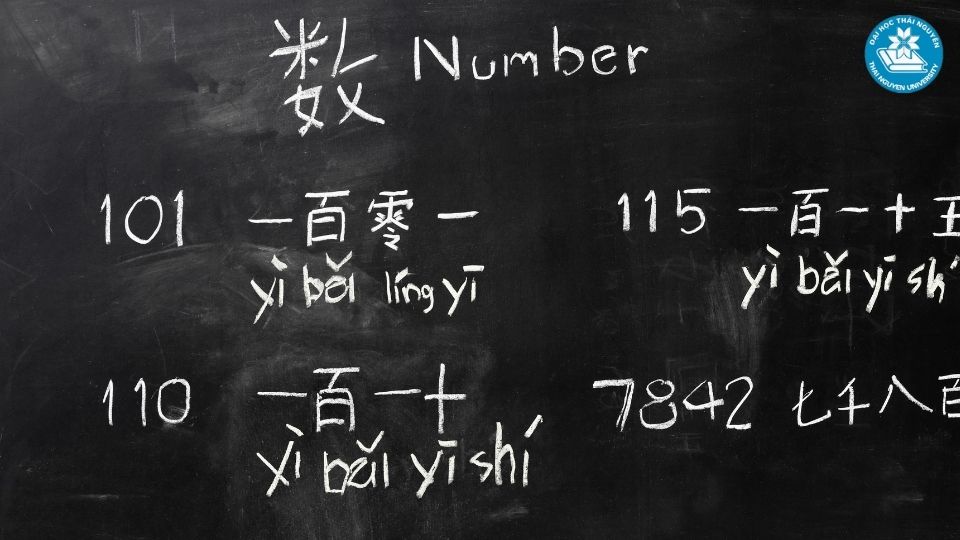 数 Number
ĐẠI HỌC THÁI NGUYÊN
THAI NGUYEN UNIVERSITY
101 一百零一
yì bǎi líng yī
115 一百一十五
yì bǎi yī shí
110 一百一十
yì bǎi yī shí
7842 七千八百